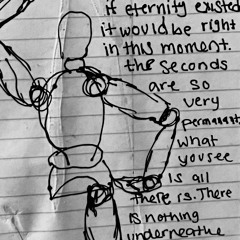 if eternity existed
it would be right
in this moment.
the seconds
are so
very
permanant.
what
you see
is all
there is. There
is nothing
underneathe